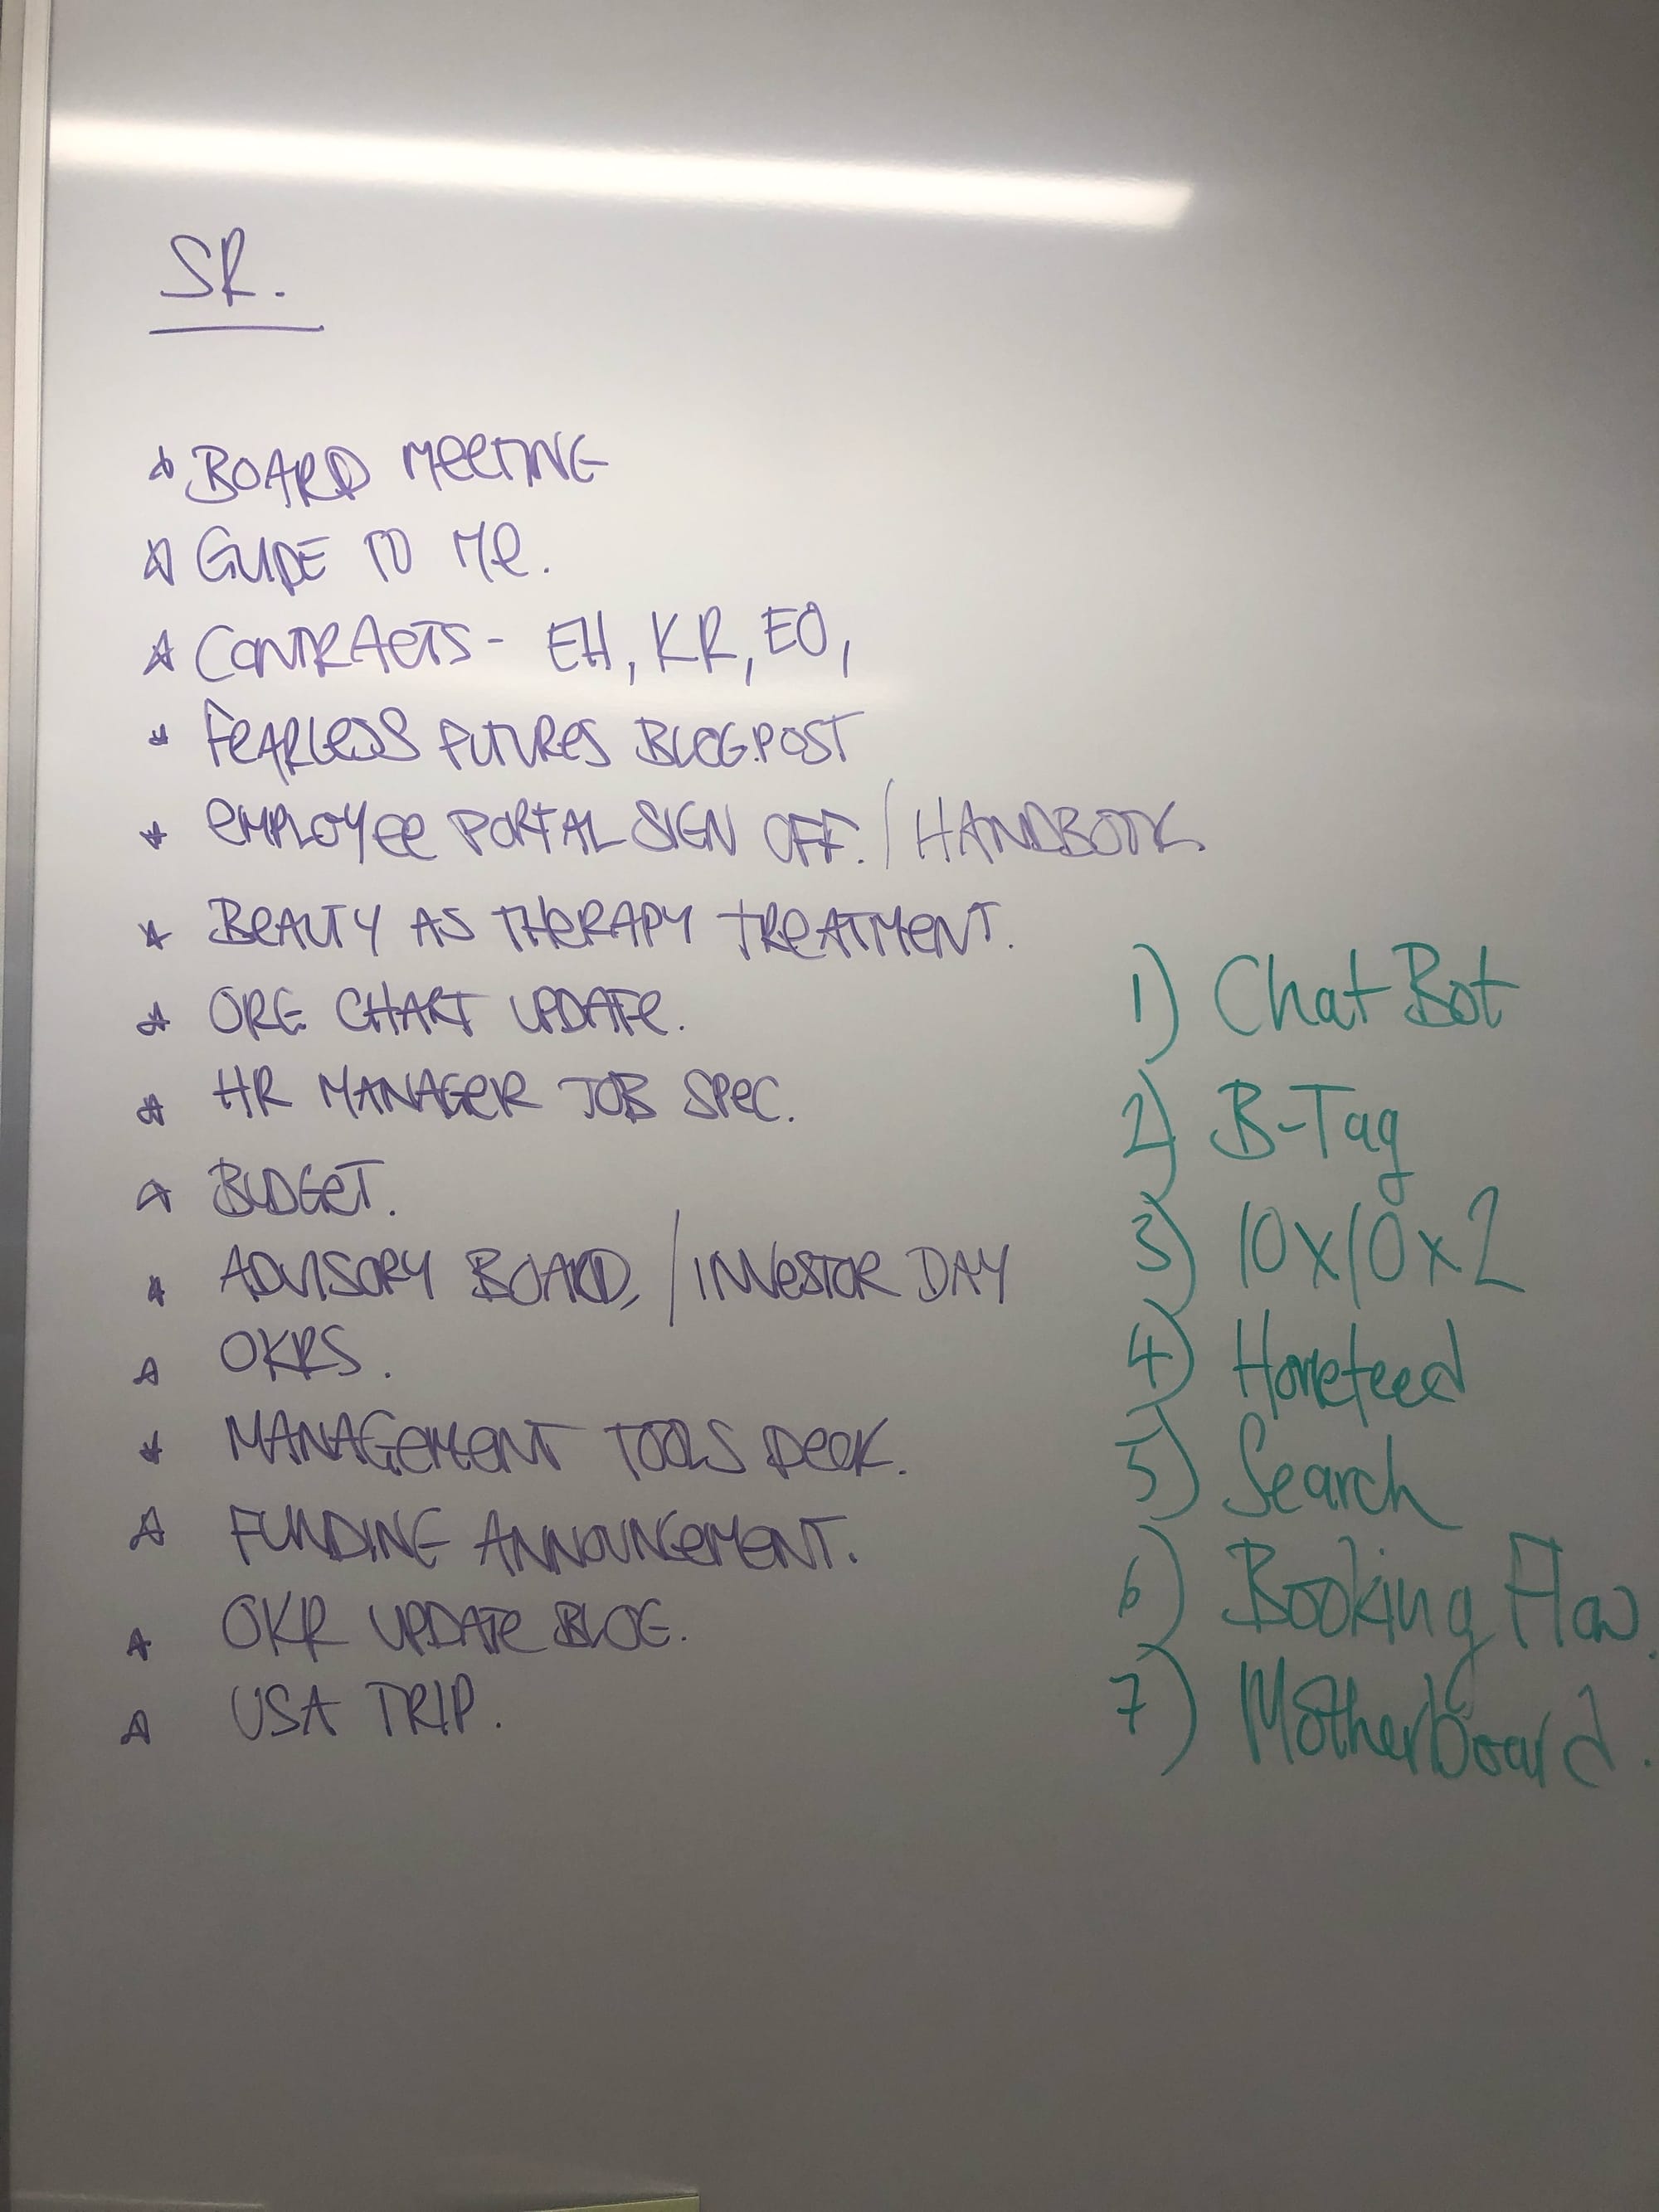 SR.
* BOARD MEETING
* GUIDE TO ME.
* CONTRACTS - EH, KR, EO,
* FEARLESS FUTURES BLOG.POST
* EMPLOYEE PORTAL SIGN OFF. / HANDBOOK.
* BEAUTY AS THERAPY TREATMENT.
* ORG CHART UPDATE.
* HR MANAGER JOB SPEC.
* BUDGET.
* ADVISORY BOARD, / INVESTOR DAY
* OKRS.
* MANAGEMENT TOOLS DECK.
* FUNDING ANNOUNCEMENT.
* OKR UPDATE BLOG.
* USA TRIP.
1) Chat Bot
2) B-Tag
3) 10x10x2
4) Homefeed
5) Search
6) Booking Flow.
7) Motherboard.